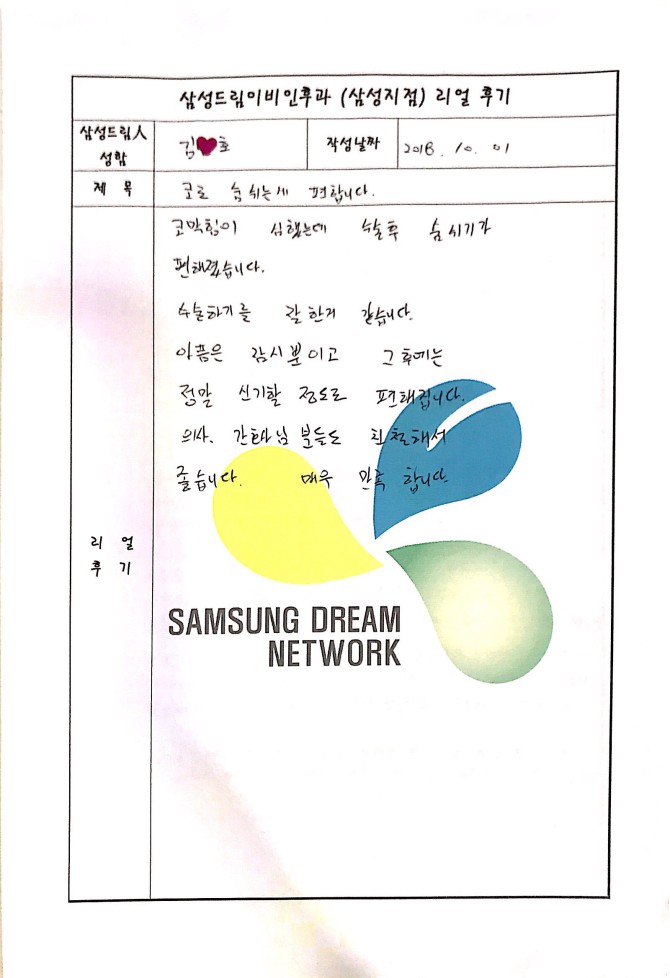 삼성드림이비인후과 (삼성지점) 리얼 후기
삼성드림人
성함
김♥호
작성날짜
2018. 10. 01
제 목
코로 숨쉬는게 편합니다.
코막힘이 심했는데 수술후 숨 쉬기가
편해졌습니다.
수술하기를 잘 한거 같습니다.
아픔은 잠시뿐이고 그 후에는
정말 신기할 정도로 편해집니다.
의사, 간호사님 분들도 친절해서
좋습니다. 매우 만족 합니다
리 얼
후 기
SAMSUNG DREAM
NETWORK